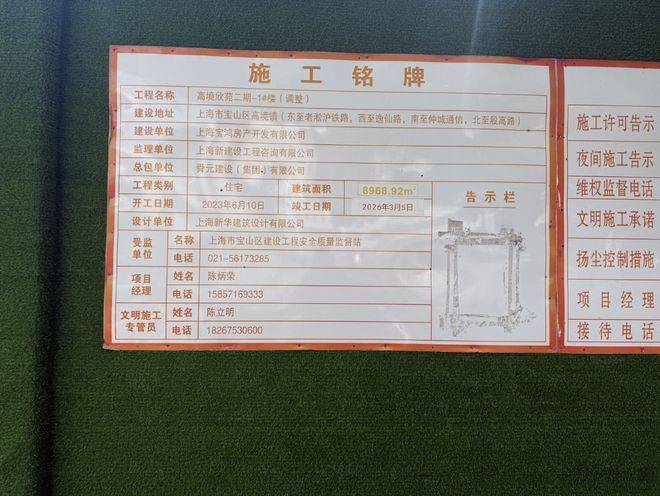 施工铭牌
工程名称 高境欣苑二期-1#楼（调整）
建设地址 上海市宝山区高境镇（东至老淞沪铁路，西至逸仙路，南至仲城通信，北至殷高路）
建设单位 上海宝鸿房产开发有限公司
监理单位 上海新建设工程咨询有限公司
总包单位 舜元建设（集团）有限公司
工程类别 住宅 建筑面积 8968.92m²
开工日期 2023年6月10日 竣工日期 2026年3月5日
设计单位 上海新华建筑设计有限公司
受监单位 名称 上海市宝山区建设工程安全质量监督站
电话 021-56173285
项目经理 姓名 陈炳荣
电话 15857169333
文明施工专管员 姓名 陈立明
电话 18267530600
告示栏
施工许可告示
夜间施工告示
维权监督电话
文明施工承诺
扬尘控制措施
项目经理
接待电话